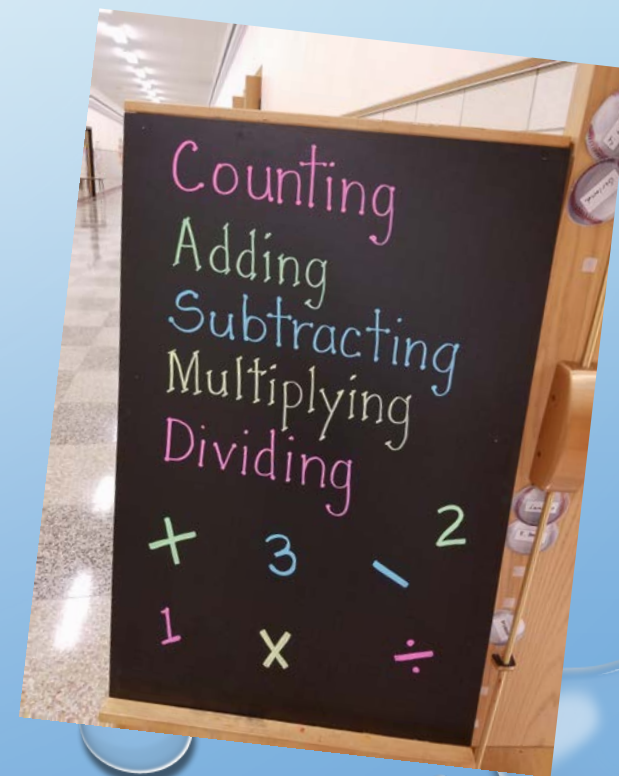 Counting
Adding
Subtracting
Multiplying
Dividing
+ 3 - 2
1 x ÷